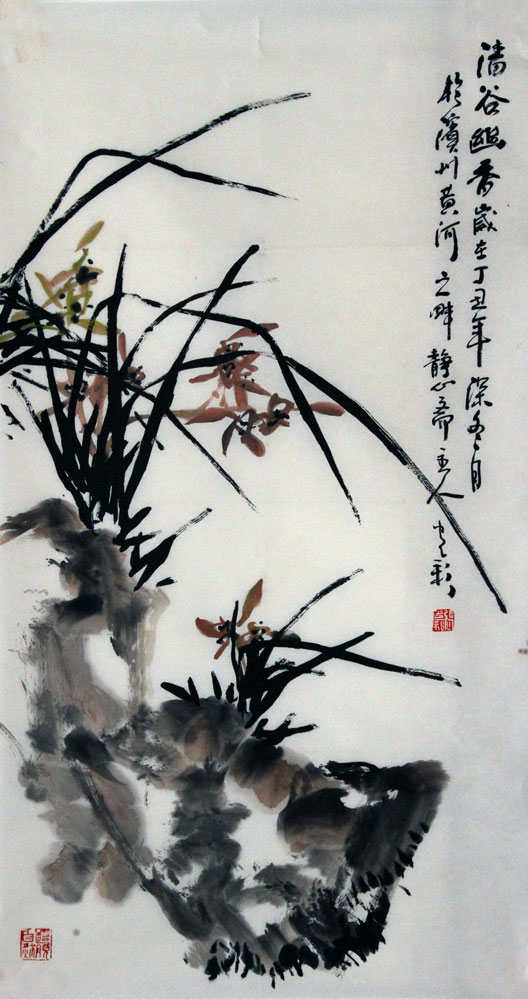 谷幽香歲在丁丑年深冬月
於濱州黄河之畔静心斋主人